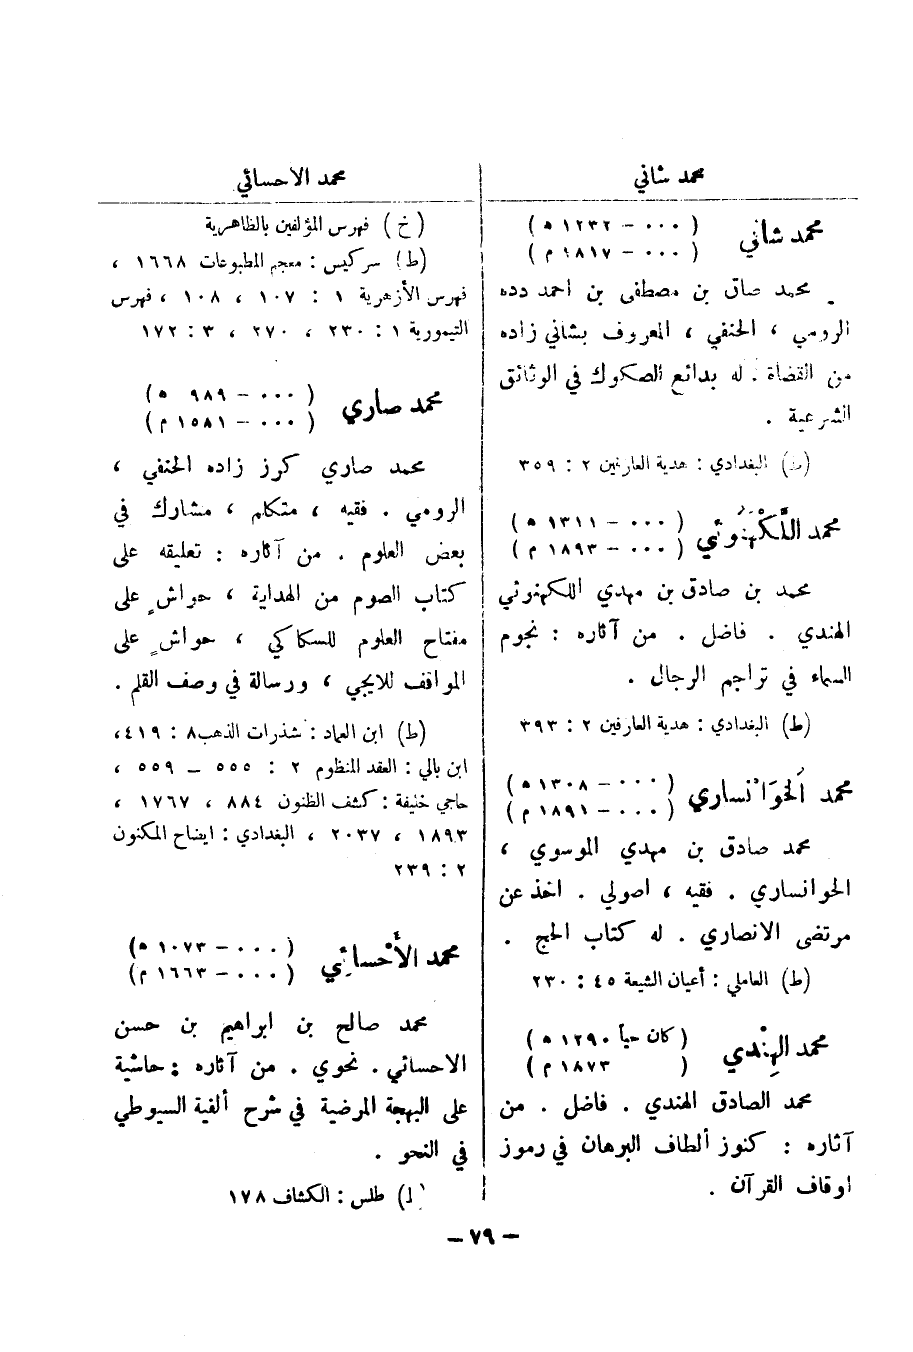 محمد شاني
محمد شاني ( ٠٠٠ – ١٢٣٢ ه )
( ٠٠٠ – ١٨١٧ م )
محمد صادق بن مصطفى بن احمد دده
الرومي ، الحنفي ، المعروف بشاني زاده
من القضاة . له بدائع الصكوك في الوثائق
الشرعية .
(ط) البغدادي : هدية العارفين ٢ : ٣٥٩
محمد اللَّكْهَنُوئي ( ٠٠٠ – ١٣١١ ه )
( ٠٠٠ – ١٨٩٣ م )
محمد بن صادق بن مهدي اللكهنوئي
الهندي . فاضل . من آثاره : نجوم
السماء في تراجم الرجال .
(ط) البغدادي : هدية العارفين ٢ : ٣٩٣
محمد الخُوَانساري ( ٠٠٠ – ١٣٠٨ ه )
( ٠٠٠ – ١٨٩١ م )
محمد صادق بن مهدي الموسوي ،
الخوانساري . فقيه ، اصولي . اخذ عن
مرتضى الانصاري . له كتاب الحج .
(ط) العاملي : أعيان الشيعة ٤٥ : ٢٣٠
محمد الهِنْدي ( كان حياً ١٢٩٠ ه )
( ١٨٧٣ م )
محمد الصادق الهندي . فاضل . من
آثاره : كنوز ألطاف البرهان في رموز
اوقاف القرآن .
محمد الاحسائي
(خ) فهرس المؤلفين بالظاهرية
(ط) سركيس : معجم المطبوعات ١٦٦٨ ،
فهرس الأزهرية ١ : ١٠٧ ، ١٠٨ ، فهرس
التيمورية ١ : ٢٣٠ ، ٢٧٠ ، ٣ : ١٧٢
محمد صاري ( ٠٠٠ – ٩٨٩ ه )
( ٠٠٠ – ١٥٨١ م )
محمد صاري كرز زاده الحنفي ،
الرومي . فقيه ، متكلم ، مشارك في
بعض العلوم . من آثاره : تعليقه على
كتاب الصوم من الهداية ، حواشٍ على
مفتاح العلوم للسكاكي ، حواشٍ على
المواقف للايجي ، ورسالة في وصف القلم .
(ط) ابن العماد : شذرات الذهب ٨ : ٤١٩،
ابن بالي : العقد المنظوم ٢ : ٥٥٥ – ٥٥٩ ،
حاجي خليفة : كشف الظنون ٨٨٤ ، ١٧٦٧ ،
١٨٩٣ ، ٢٠٣٧ ، البغدادي : ايضاح المكنون
٢ : ٢٣٩
محمد الأَحْسائِي ( ٠٠٠ – ١٠٧٣ ه )
( ٠٠٠ – ١٦٦٣ م )
محمد صالح بن ابراهيم بن حسن
الاحسائي . نحوي . من آثاره : حاشية
على البهجة المرضية في شرح ألفية السيوطي
في النحو .
(ط) طلس : الكشاف ١٧٨
– ٧٩ –